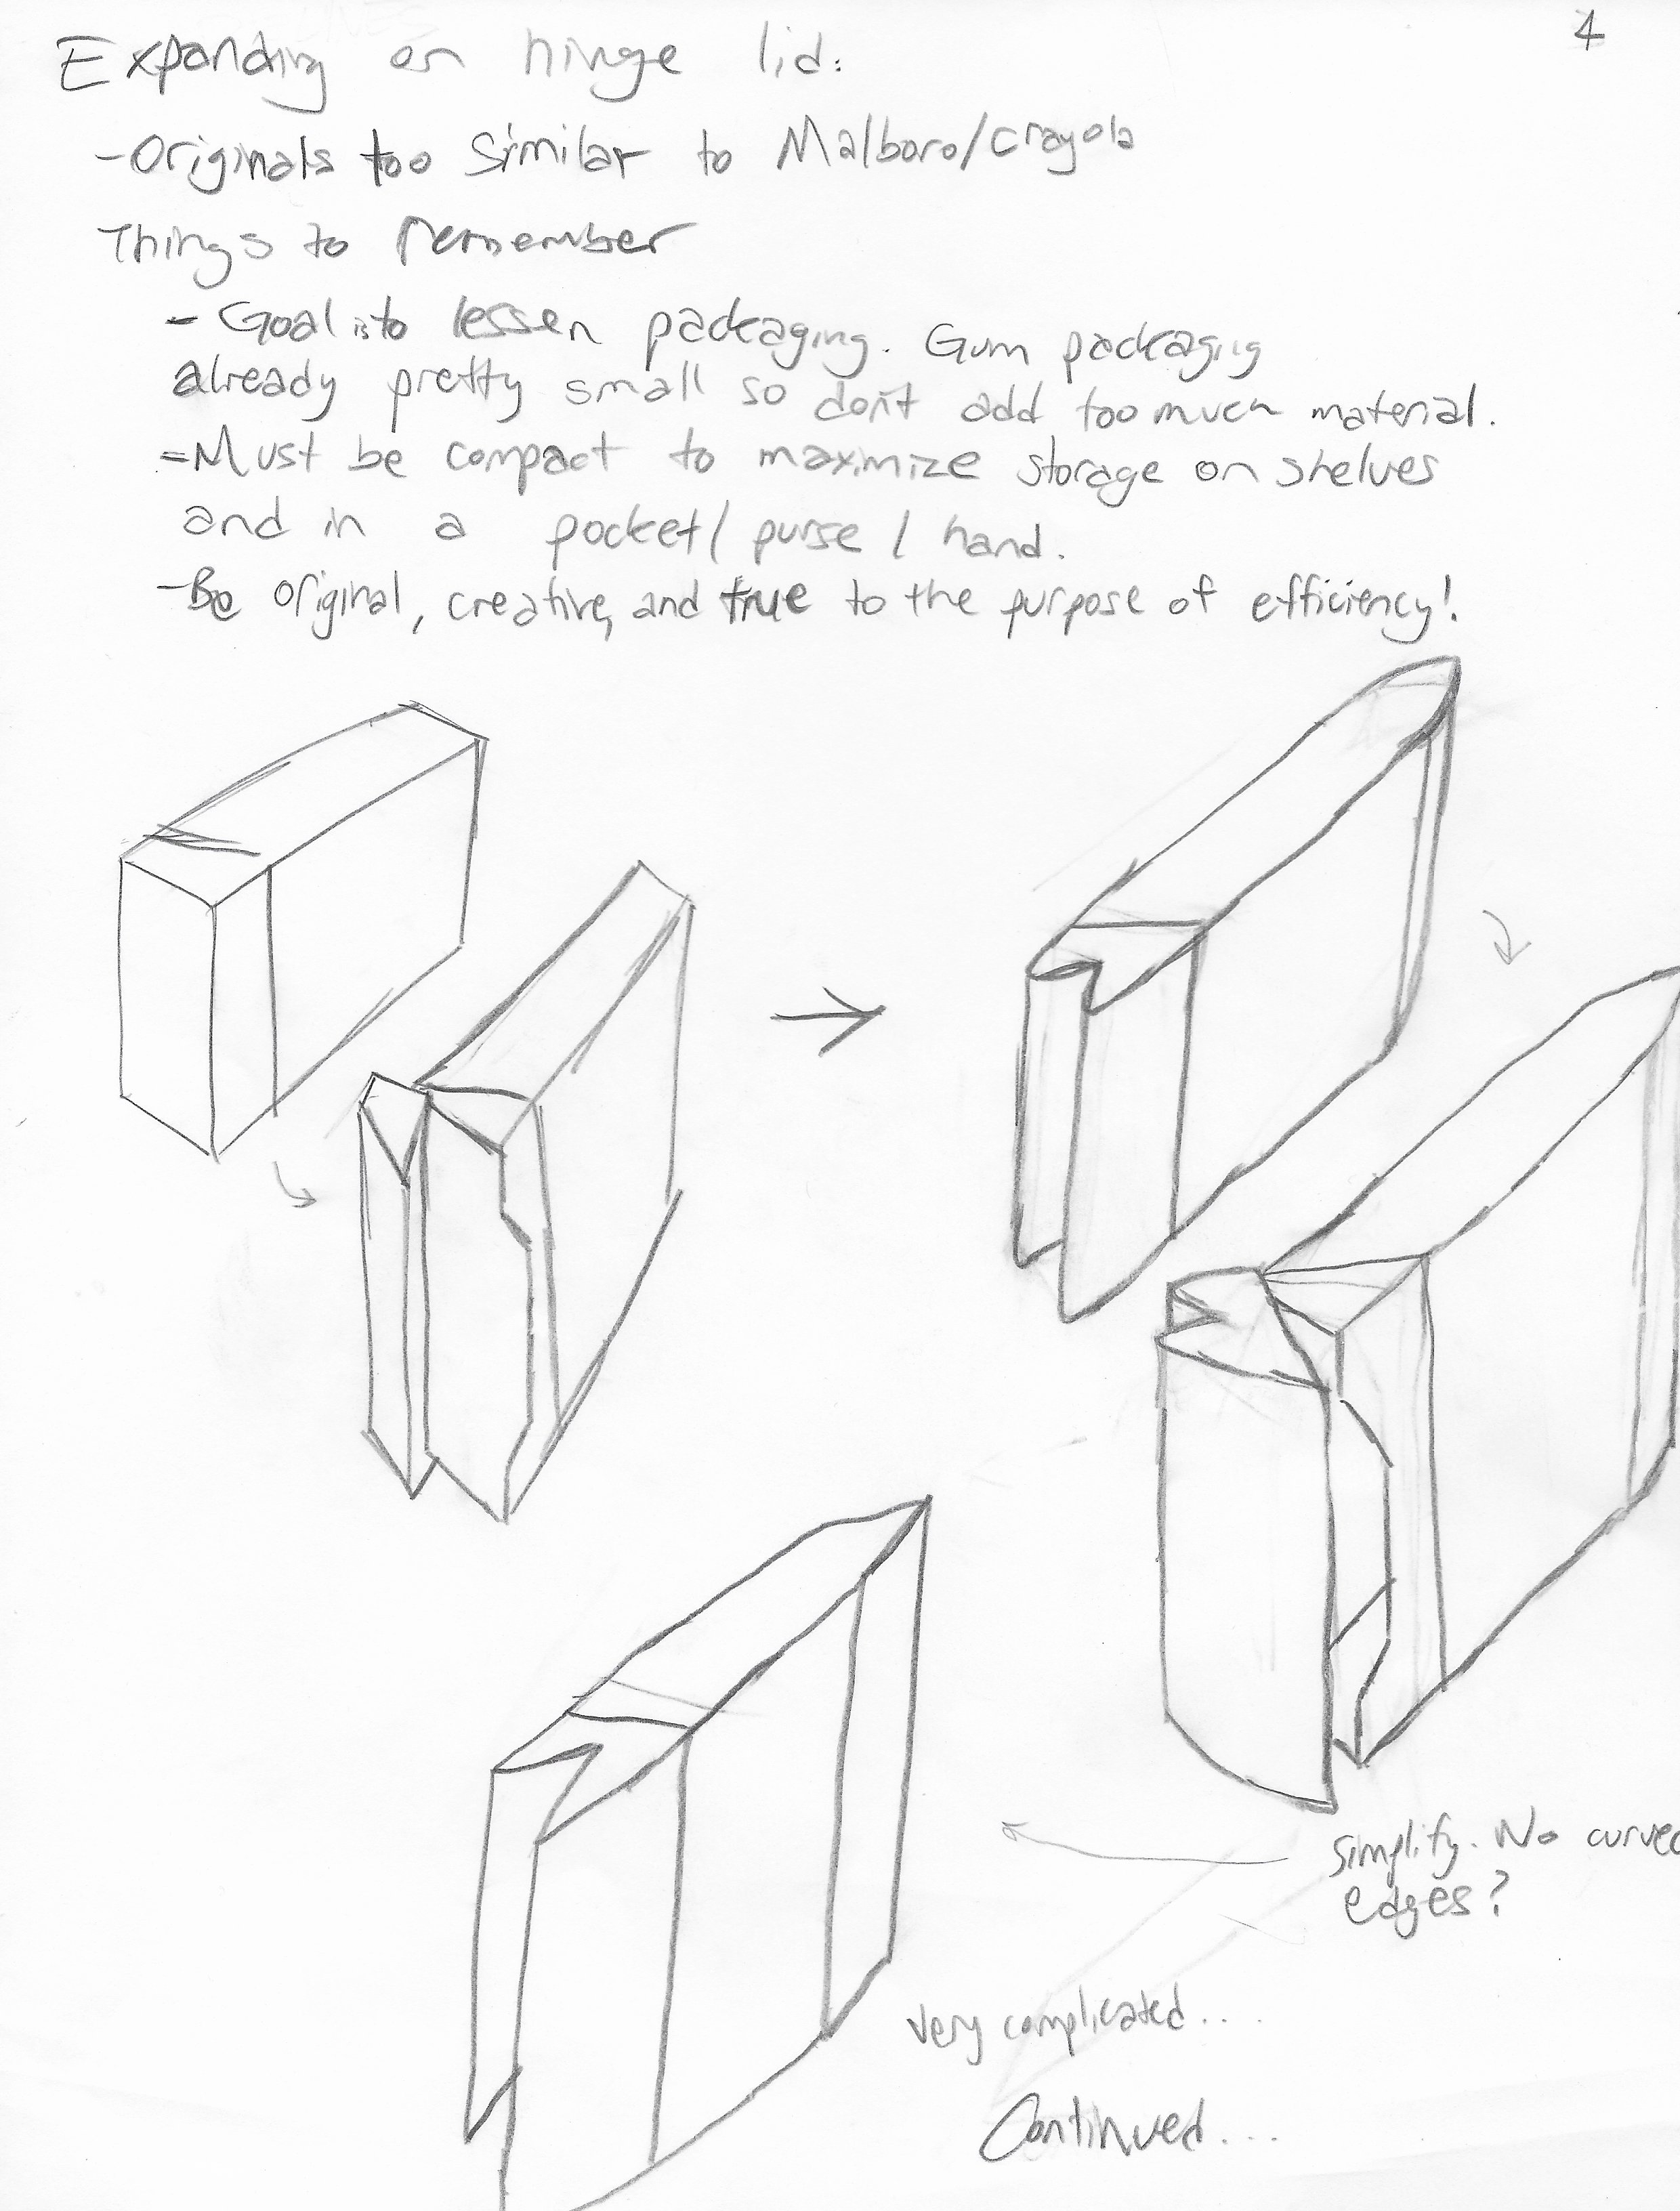 4
Expanding on hinge lid:
-Originals too similar to Malboro/crayola
Things to remember
- Goal is to lessen packaging. Gum packaging
already pretty small so don't add too much material.
-Must be compact to maximize storage on shelves
and in a pocket/ purse / hand.
-Be original, creative, and true to the purpose of efficiency!
Simplify. No curved
edges?
very complicated....
Continued...